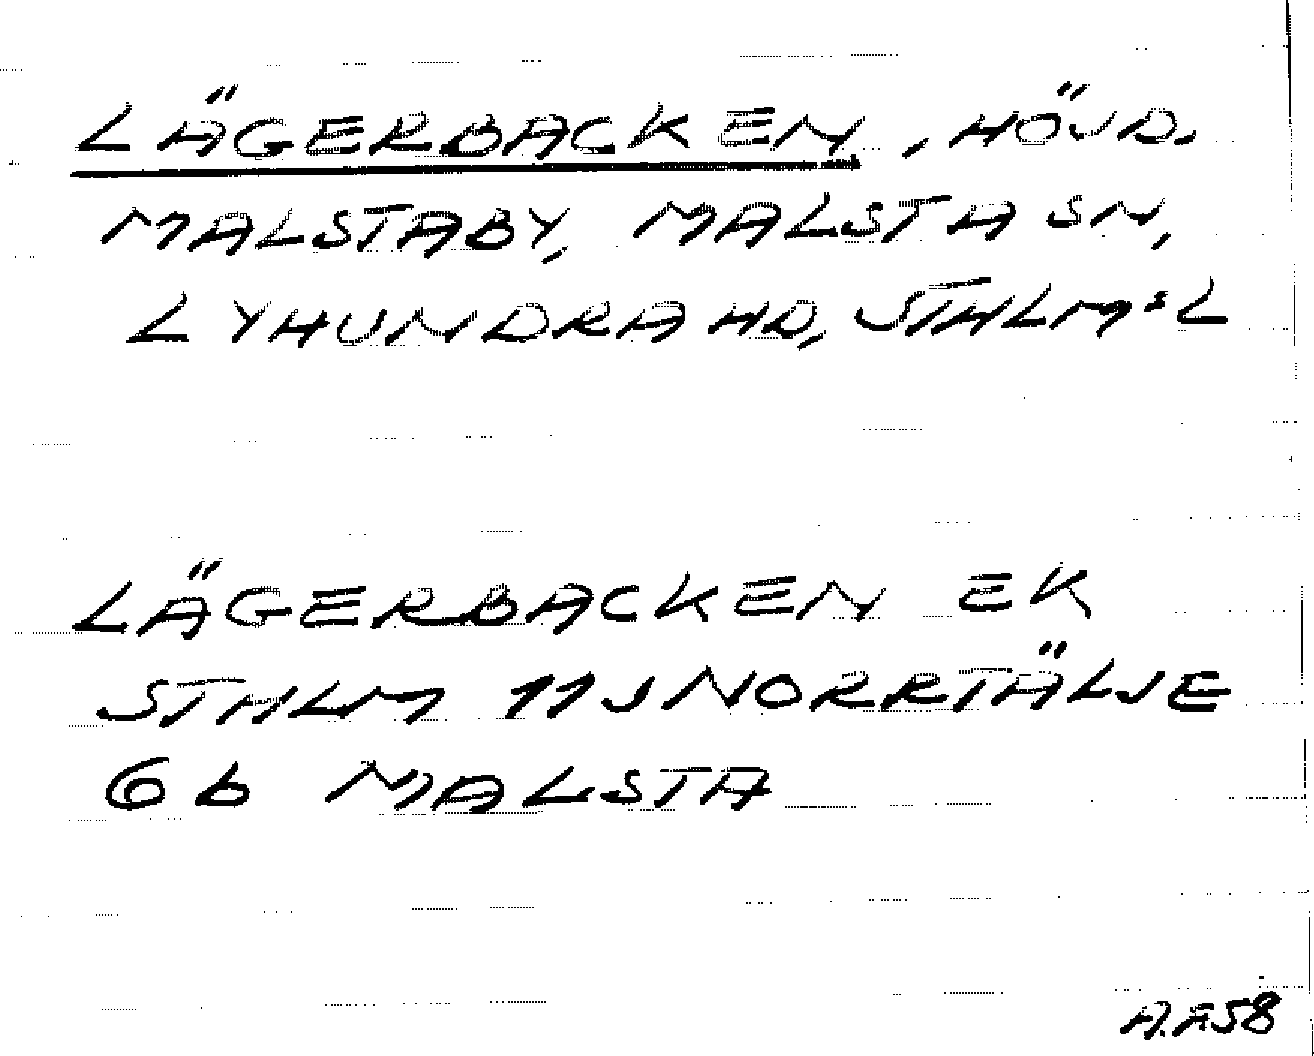 LÄGERBACKEN, HÖJD.
MALSTABY, MALSTA SN,
LYHUNDRA HD, STHLM:S L
LÄGERBACKEN EK
STHLM 11J NORRTÄLJE
6b MALSTA